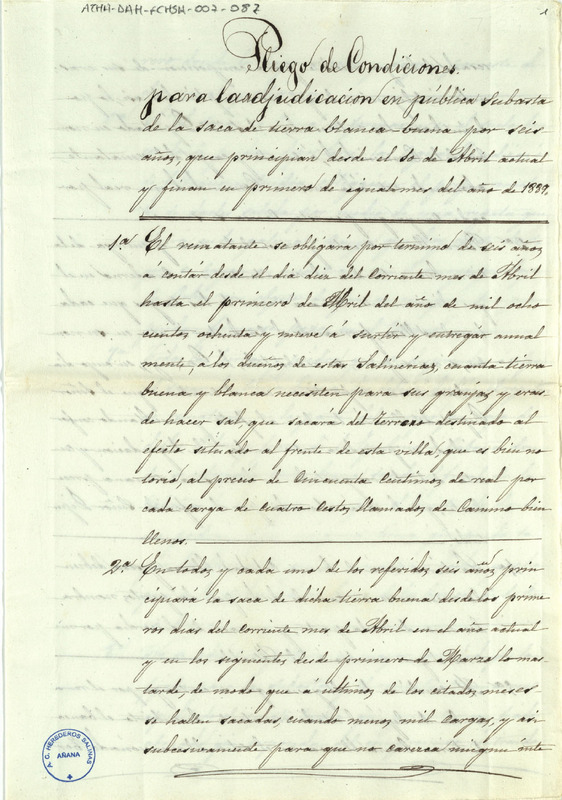 ATHA-DAH-FCHSH-002-087
1
Pliego de Condiciones.
para la adjudicacion en pública subasta
de la saca de tierra blanca buena por seis
años, que principian desde el 10 de Abril actual
y finan en primero de igual mes del año de 1889.
1ª El rematante se obligará por termino de seis años,
á contár desde el dia diez del corriente mes de Abril
hasta el primero de Abril del año de mil ocho
cientos ochenta y nueve á surtir y entregár anual
mente, á los dueños de estas Salinerías, cuanta tierra
buena y blanca necesiten para sus granjas y eras
de hacer sal, que sacará del terreno destinado al
efecto situado al frente de esta villa, que es bien no
torio, al precio de Cincuenta Centimos de real por
cada carga de Cuatro Cestos llamados de Camino bien
llenos.
2ª En todos y cada uno de los referidos seis años, prin
cipiará la saca de dicha tierra buena desde los prime
ros dias del corriente mes de Abril en el año actual
y en los siguientes desde primero de Marzo lo mas
tarde, de modo que á ultimos de los citados meses
se hallen sacadas, cuando menos mil cargas, y asi
subcesivamente para que no carezca ningun inte
A. C. HEREDEROS SALINAS
AÑANA